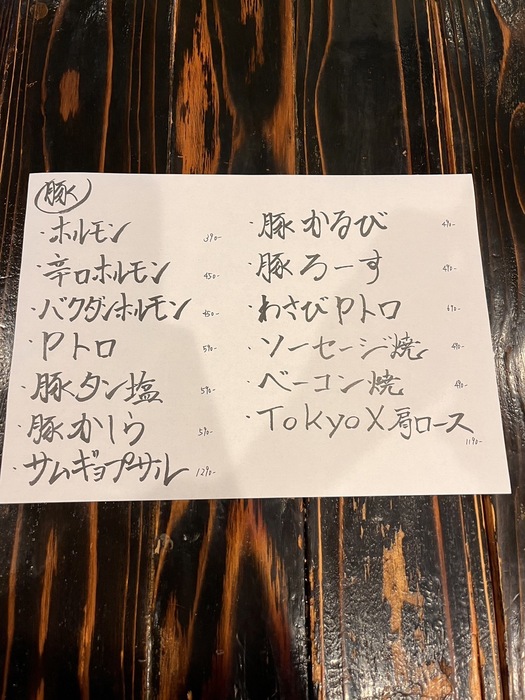 豚
・ホルモン 390-
・辛口ホルモン 450-
・バクダンホルモン 450-
・Pトロ 590-
・豚タン塩 590-
・豚かしら 590-
・サムギョプサル 1290-
・豚かるび 490-
・豚ろーす 490-
・わさびPトロ 690-
・ソーセージ焼 490-
・ベーコン焼 490-
・TokyoX肩ロース 1190-